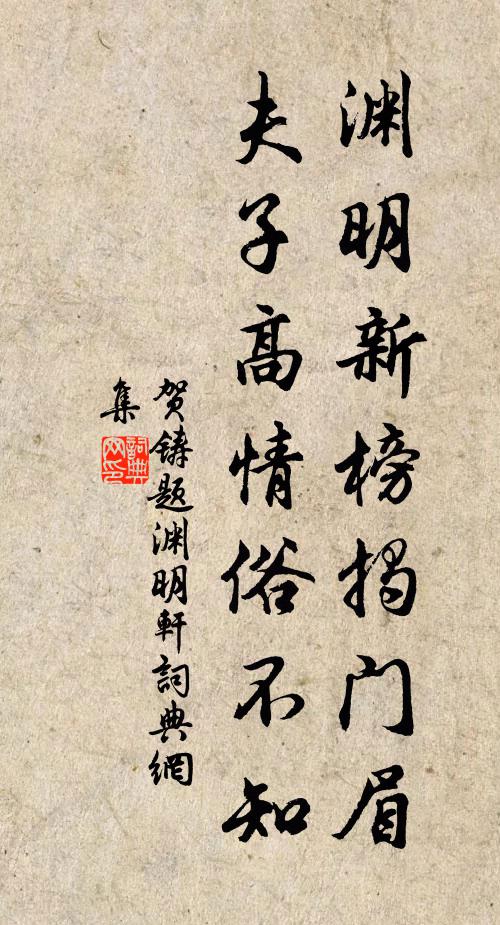 渊明新榜揭门眉
夫子高情俗不知
贺铸题渊明軒詞典網
集
詞典网印